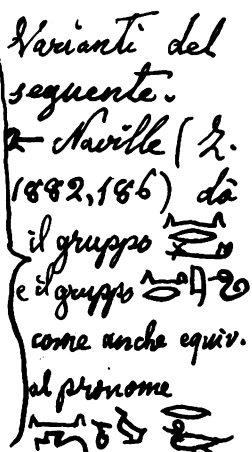 Varianti del
seguente.
2— Naville (Z.
1882,186) dà
il gruppo
e il gruppo
come anche equiv.
al pronome